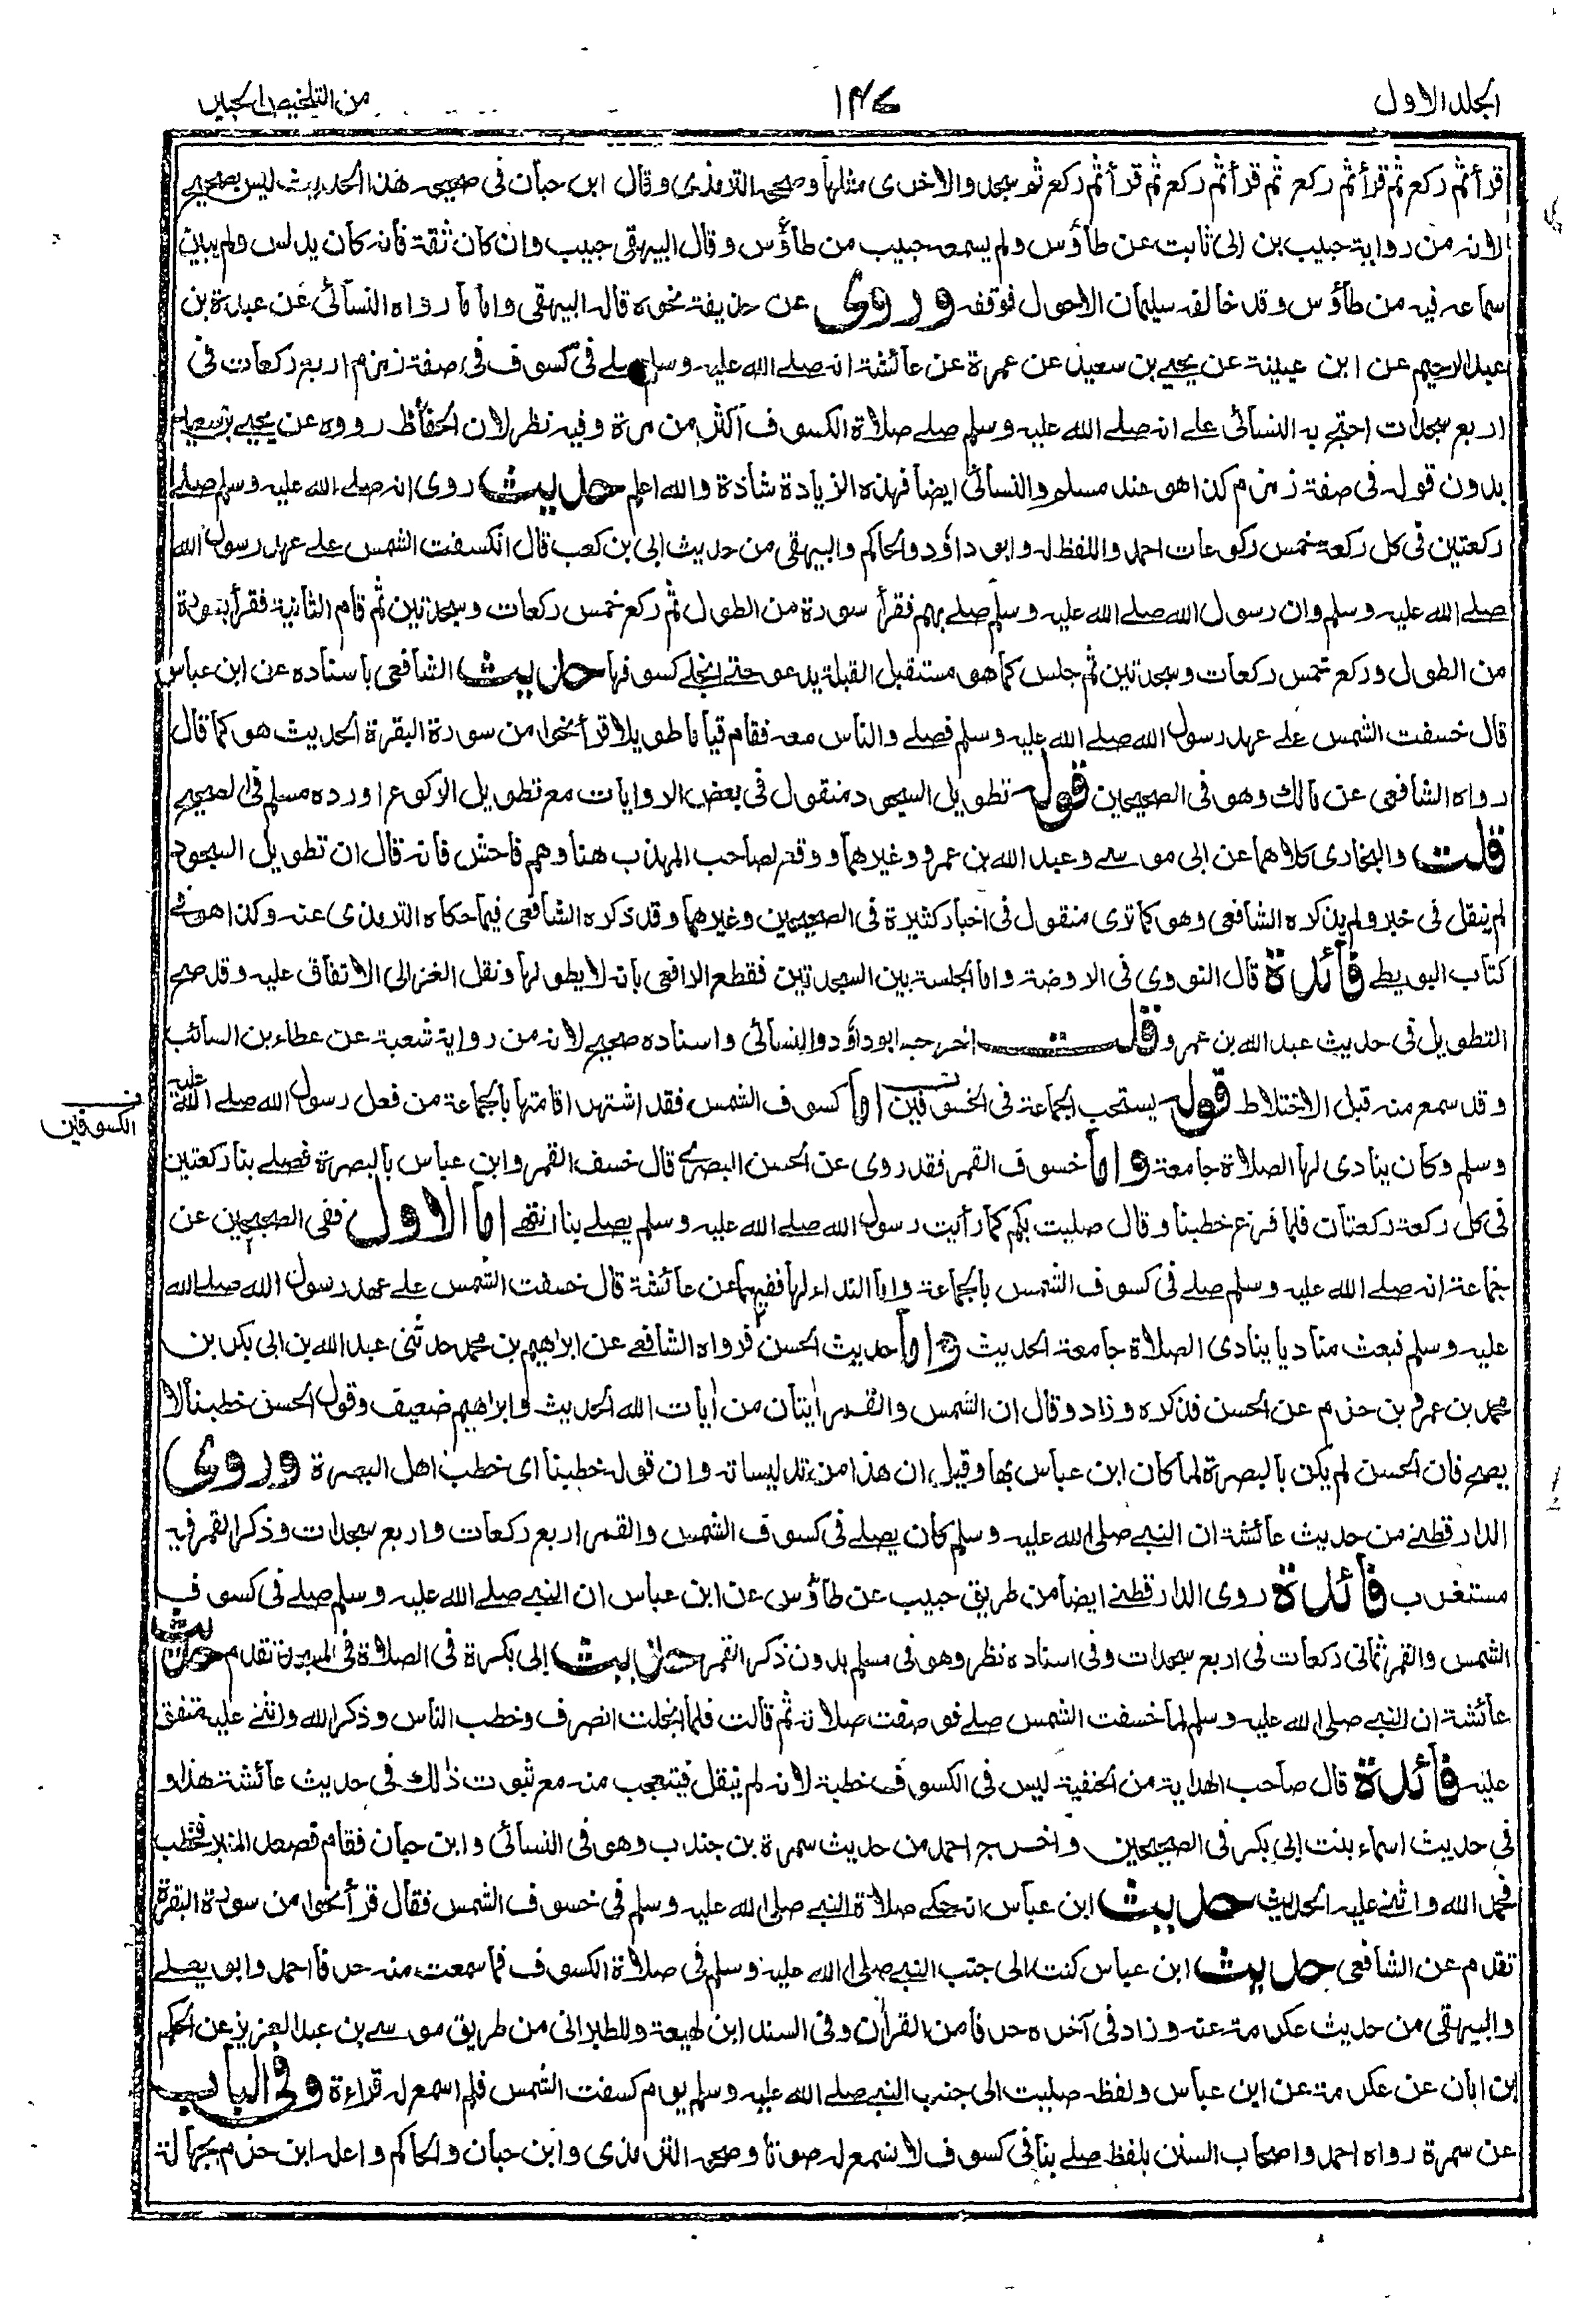 الجلد الاول
١٤٧
من التلخيص الحبير
قرأ ثم ركع ثم قرأ ثم ركع ثم قرأ ثم ركع ثم قرأ ثم ركع ثم سجد والاخرى مثلها وصححه الترمذى وقال ابن حبان فى صحيحه هذا الحديث ليس بصحيح
لانه من رواية حبيب بن ابى ثابت عن طاؤس ولم يسمعه حبيب من طاؤس وقال البيهقى حبيب وان كان ثقة فانه كان يدلس ولم يبين
سماعه فيه من طاؤس وقد خالفه سليمان الاحول فوقفه وروى عن حذيفة نحوه قاله البيهقى واما ما رواه النسائى عن عبدة بن
عبد الرحيم عن ابن عيينة عن يحيى بن سعيد عن عمرة عن عائشة انه صلى الله عليه وسلم صلى فى كسوف فى صفة زمزم اربع ركعات فى
اربع سجدات احتج به النسائى على انه صلى الله عليه وسلم صلى صلاة الكسوف اكثر من مرة وفيه نظر لان الحفاظ رووه عن يحيى بن سعيد
بدون قوله فى صفة زمزم كذا هو عند مسلم والنسائى ايضا فهذه الزيادة شاذة والله اعلم حديث روى انه صلى الله عليه وسلم صلى
ركعتين فى كل ركعة خمس ركوعات احمد واللفظ له وابو داؤد والحاكم والبيهقى من حديث ابى بن كعب قال انكسفت الشمس على عهد رسول الله
صلى الله عليه وسلم وان رسول الله صلى الله عليه وسلم صلى بهم فقرأ سورة من الطول ثم ركع خمس ركعات وسجدتين ثم قام الثانية فقرأ بسورة
من الطول وركع خمس ركعات وسجدتين ثم جلس كما هو مستقبل القبلة يدعو حتى انجلى كسوفها حديث الشافعى باسناده عن ابن عباس
قال خسفت الشمس على عهد رسول الله صلى الله عليه وسلم فصلى والناس معه فقام قياما طويلا قرأ نحوا من سورة البقرة الحديث هو كما قال
رواه الشافعى عن مالك وهو فى الصحيحين قوله تطويل السجود منقول فى بعض الروايات مع تطويل الركوع اورده مسلم فى الصحيح
قلت والبخارى كلاهما عن ابى موسى وعبد الله بن عمرو وغيرهما ووقع لصاحب المهذب هنا وهم فاحش فانه قال ان تطويل السجود
لم ينقل فى خبر ولم يذكره الشافعى وهو كما ترى منقول فى اخبار كثيرة فى الصحيحين وغيرهما وقد ذكره الشافعى فيما حكاه الترمذى عنه وكذا هو فى
كتاب البويطى فائدة قال النووى فى الروضة واما الجلسة بين السجدتين فقطع الرافعى بانه لا يطولها ونقل الغزالى الاتفاق عليه وقد صح
التطويل فى حديث عبد الله بن عمرو قلت اخرجه ابو داؤد والنسائى واسناده صحيح لانه من رواية شعبة عن عطاء بن السائب
وقد سمع منه قبل الاختلاط قوله يستحب الجماعة فى الخسوفين اما كسوف الشمس فقد اشتهر اقامتها بالجماعة من فعل رسول الله صلى الله عليه
الكسوفين
وسلم وكان ينادى لها الصلاة جامعة واما خسوف القمر فقد روى عن الحسن البصرى قال خسف القمر وابن عباس بالبصرة فصلى بنا ركعتين
فى كل ركعة ركعتان فلما فرغ خطبنا وقال صليت بكم كما رأيت رسول الله صلى الله عليه وسلم يصلى بنا انتهى اما الاول ففى الصحيحين عن
جماعة انه صلى الله عليه وسلم صلى فى كسوف الشمس بالجماعة واما النداء لها ففيهما عن عائشة قال خسفت الشمس على عهد رسول الله صلى الله
عليه وسلم فبعث مناديا ينادى الصلاة جامعة الحديث واما حديث الحسن فرواه الشافعى عن ابراهيم بن محمد حدثنى عبد الله بن ابى بكر بن
محمد بن عمرو بن حزم عن الحسن فذكره وزاد وقال ان الشمس والقمر ايتان من ايات الله الحديث وابراهيم ضعيف وقول الحسن خطبنا لا
يصح فان الحسن لم يكن بالبصرة لما كان ابن عباس بها وقيل ان هذا من تدليساته وان قوله خطبنا اى خطب اهل البصرة وروى
الدارقطنى من حديث عائشة ان النبى صلى الله عليه وسلم كان يصلى فى كسوف الشمس والقمر اربع ركعات واربع سجدات وذكر القمر فيه
مستغرب فائدة روى الدارقطنى ايضا من طريق حبيب عن طاؤس عن ابن عباس ان النبى صلى الله عليه وسلم صلى فى كسوف
الشمس والقمر ثمانى ركعات فى اربع سجدات وفى اسناده نظر وهو فى مسلم بدون ذكر القمر حديث ابى بكرة فى الصلاة فى المسجد تقدم حديث
عائشة ان النبى صلى الله عليه وسلم لما خسفت الشمس صلى فوصفت صلاته ثم قالت فلما انجلت انصرف وخطب الناس وذكر الله واثنى عليه متفق
عليه فائدة قال صاحب الهداية من الحنفية ليس فى الكسوف خطبة لانه لم ينقل فيتعجب منه مع ثبوت ذلك فى حديث عائشة هذا و
فى حديث اسماء بنت ابى بكر فى الصحيحين واخرج احمد من حديث سمرة بن جندب وهو فى النسائى وابن حبان فقام فصعد المنبر فخطب
فحمد الله واثنى عليه الحديث حديث ابن عباس انه حكى صلاة النبى صلى الله عليه وسلم فى خسوف الشمس فقال قرأ نحوا من سورة البقرة
تقدم عن الشافعى حديث ابن عباس كنت الى جنب النبى صلى الله عليه وسلم فى صلاة الكسوف فما سمعت منه حرفا احمد وابو يعلى
والبيهقى من حديث عكرمة عنه وزاد فى آخره حرفا من القرآن وفى السند ابن لهيعة وللطبرانى من طريق موسى بن عبد العزيز عن الحكم
بن ابان عن عكرمة عن ابن عباس ولفظه صليت الى جنب النبى صلى الله عليه وسلم يوم كسفت الشمس فلم اسمع له قراءة وفى الباب
عن سمرة رواه احمد واصحاب السنن بلفظ صلى بنا فى كسوف لا نسمع له صوتا وصححه الترمذى وابن حبان والحاكم واعله ابن حزم بجهالة